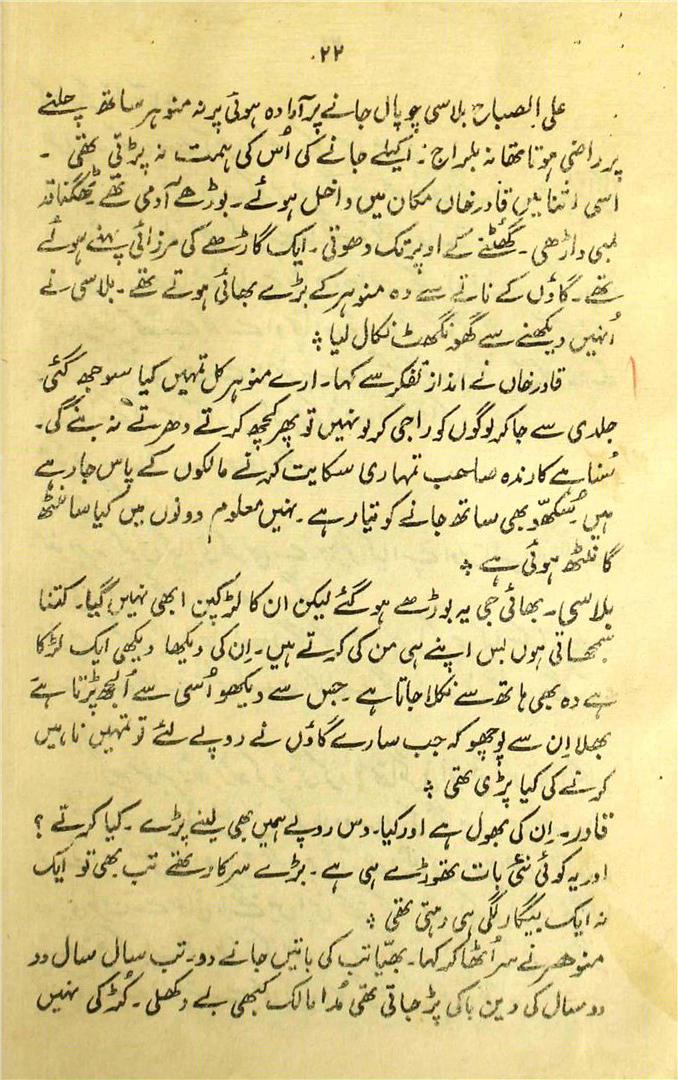 ۲۲
علی الصباح بلاسی چوپال جانے پر آمادہ ہوئی پر نہ منوہر ساتھ چلنے
پر راضی ہوتا تھا نہ بلراج۔ اکیلے جانے کی اُس کی ہمت نہ پڑتی تھی۔
اسی اثنا میں قادر خاں مکان میں داخل ہوئے۔ بوڑھے آدمی تھے ٹھگنا قد
لمبی داڑھی۔ گھٹنے کے اوپر تک دھوتی۔ ایک گاڑھے کی مرزائی پہنے ہوئے
تھے۔ گاؤں کے ناتے سے وہ منوہر کے بڑے بھائی ہوتے تھے۔ بلاسی نے
اُنہیں دیکھنے سے گھونگھٹ نکال لیا ؞
قادر خاں نے انداز تفکر سے کہا۔ ارے منوہر کل تمہیں کیا سوجھ گئی
جلدی سے جا کر لوگوں کو راجی کر لو نہیں تو پھر کچھ کرتے دھرتے نہ بنے گی۔
سُنا ہے کارندہ صاحب تمہاری سکایت کرنے مالکوں کے پاس جا رہے
ہیں سُکھّو بھی ساتھ جانے کو تیار ہے۔ نہیں معلوم دونوں میں کیا سانٹھ
گانٹھ ہوئی ہے ؞
بلاسی۔ بھائی جی یہ بوڑھے ہو گئے لیکن ان کا لڑکپن ابھی نہیں گیا۔ کتنا
سمجھاتی ہوں بس اپنے ہی من کی کرتے ہیں۔ اِن کی دیکھا دیکھی ایک لڑکا
ہے وہ بھی ہاتھ سے نکلا جاتا ہے۔ جس سے دیکھو اُسی سے اُلجھ پڑتا ہے
بھلا اِن سے پوچھو کہ جب سارے گاؤں نے روپے لئے تو تمہیں ناہیں
کرنے کی کیا پڑی تھی ؞
قادر۔ اِن کی بھول ہے اور کیا۔ دس روپے ہمیں بھی لینے پڑے۔ کیا کرتے؟
اور یہ کوئی نئی بات تھوڑے ہی ہے۔ بڑے سرکار تھے تب بھی تو ایک
نہ ایک بیگار لگی ہی رہتی تھی ؞
منوہر نے سر اُٹھا کر کہا۔ بھیّا تب کی باتیں جانے دو۔ تب سال سال دو
دو سال کی دین باکی پڑ جاتی تھی مُدا مالک کبھی بے دکھلی۔ کُڑکی نہیں